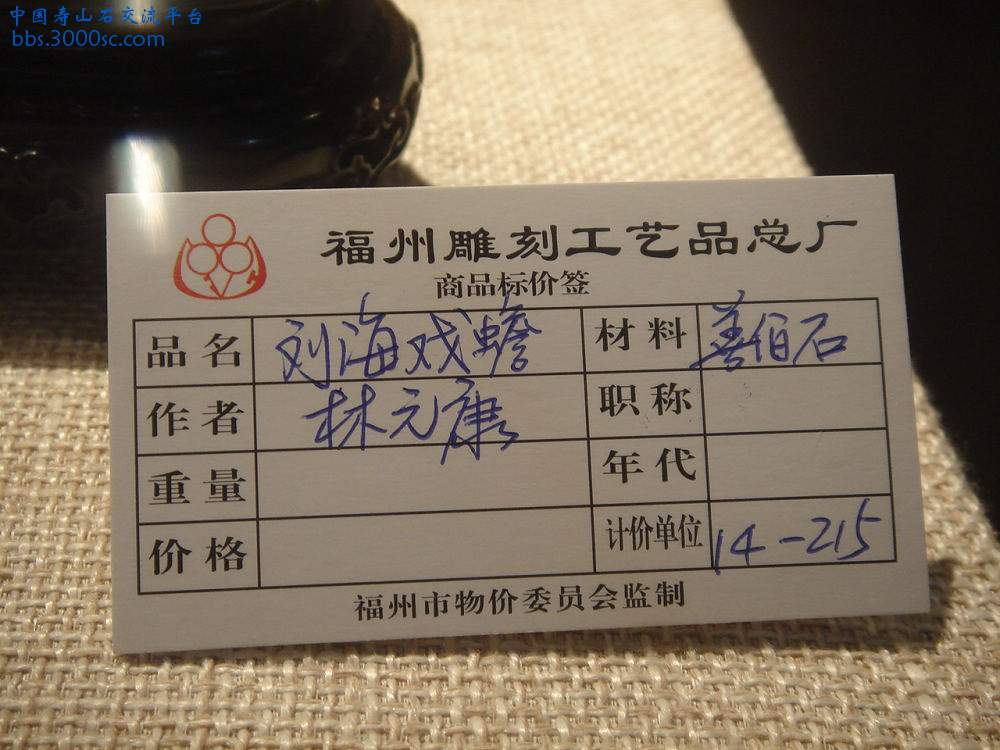 中国寿山石交流平台
bbs.3000sc.com
福州雕刻工艺品总厂
商品标价签
品名 刘海戏蟾 材料 善伯石
作者 林元康 职称
重量 年代
价格 计价单位 14-215
福州市物价委员会监制